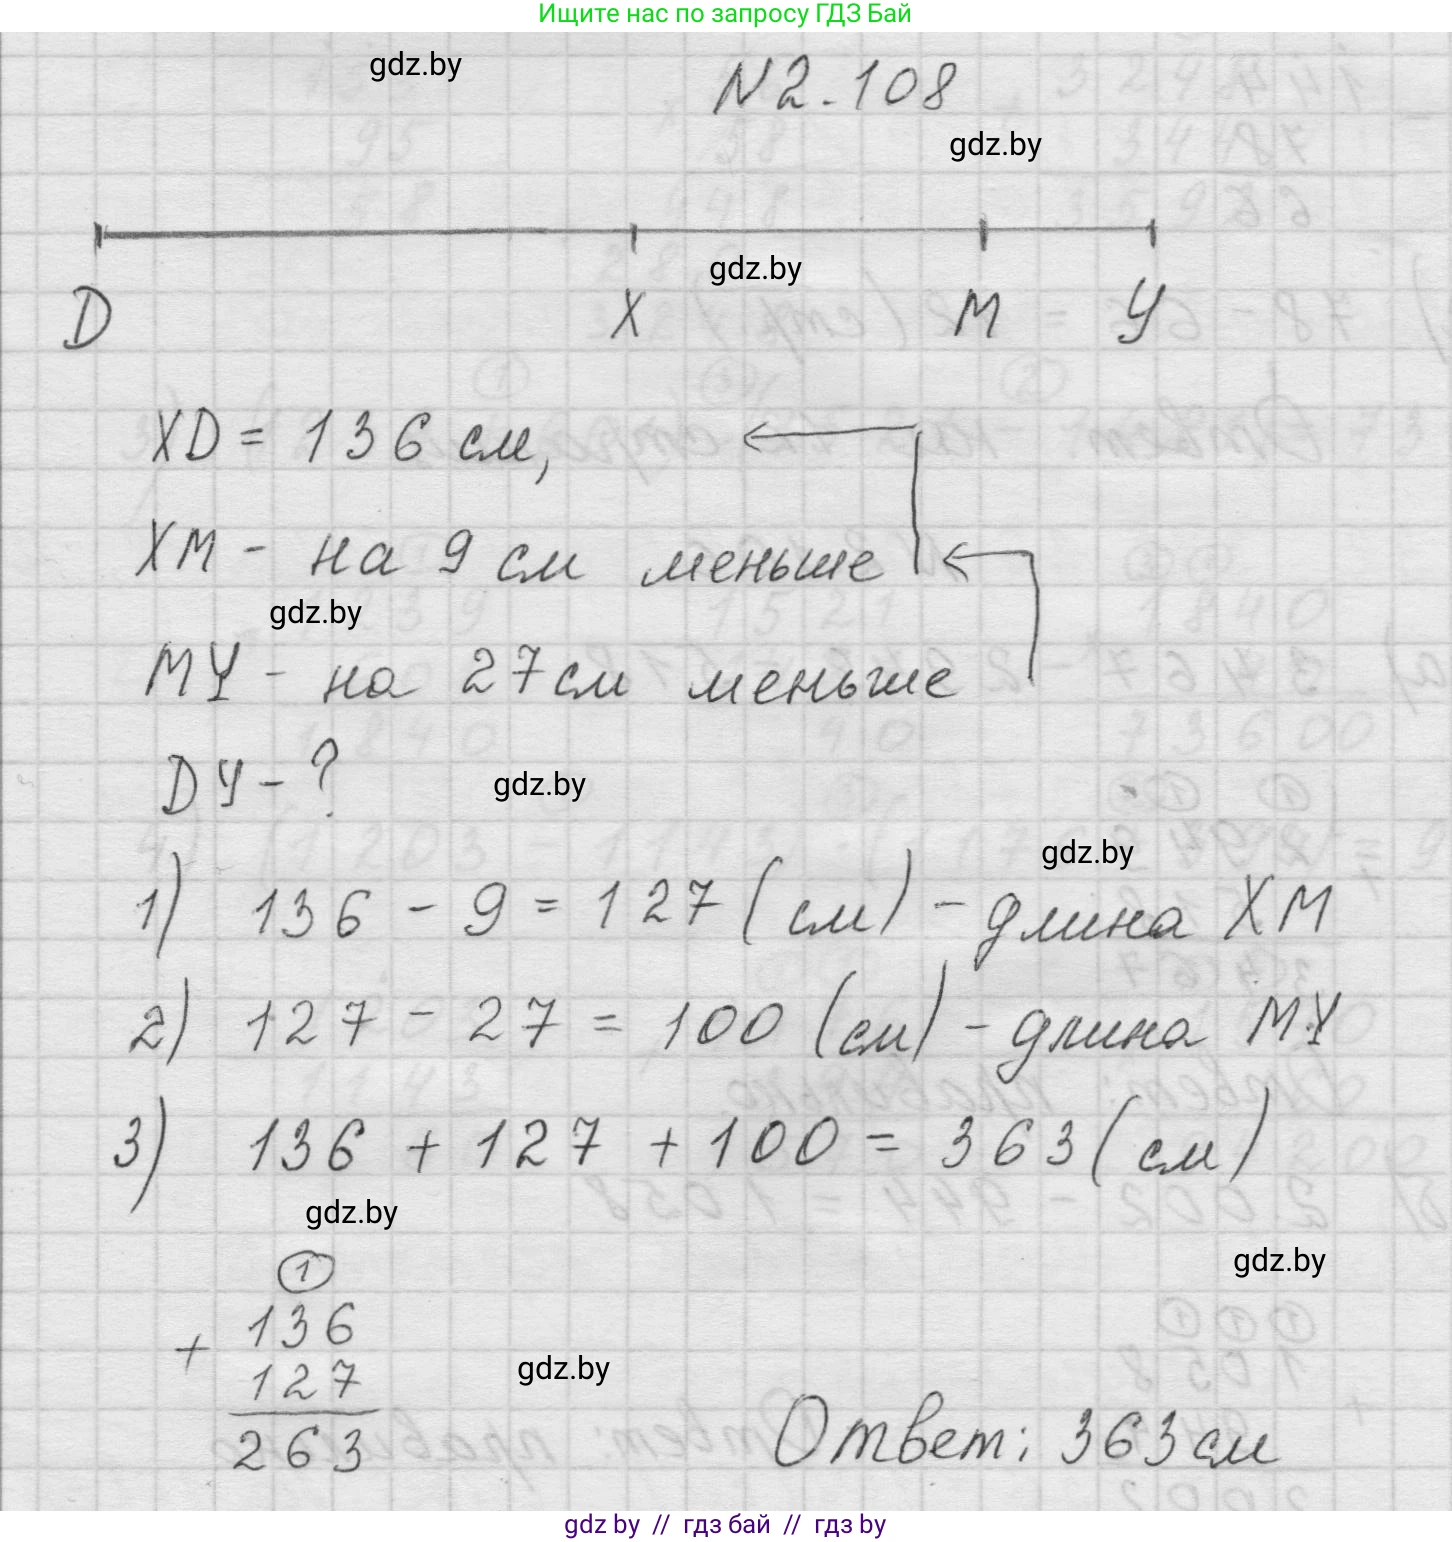 Ищите нас по запросу ГДЗ Бай
gdz.by
N2.108
gdz.by
gdz.by
D X M Y
XD = 136 см,
XM - на 9 см меньше
gdz.by
MY - на 27 см меньше
DY - ?
gdz.by
gdz.by
1) 136 - 9 = 127 (см) - длина XM
2) 127 - 27 = 100 (см) - длина MY
3) 136 + 127 + 100 = 363 (см)
gdz.by
gdz.by
1
136
+
127
gdz.by
263
Ответ: 363 см
gdz by // гдз бай // гдз by